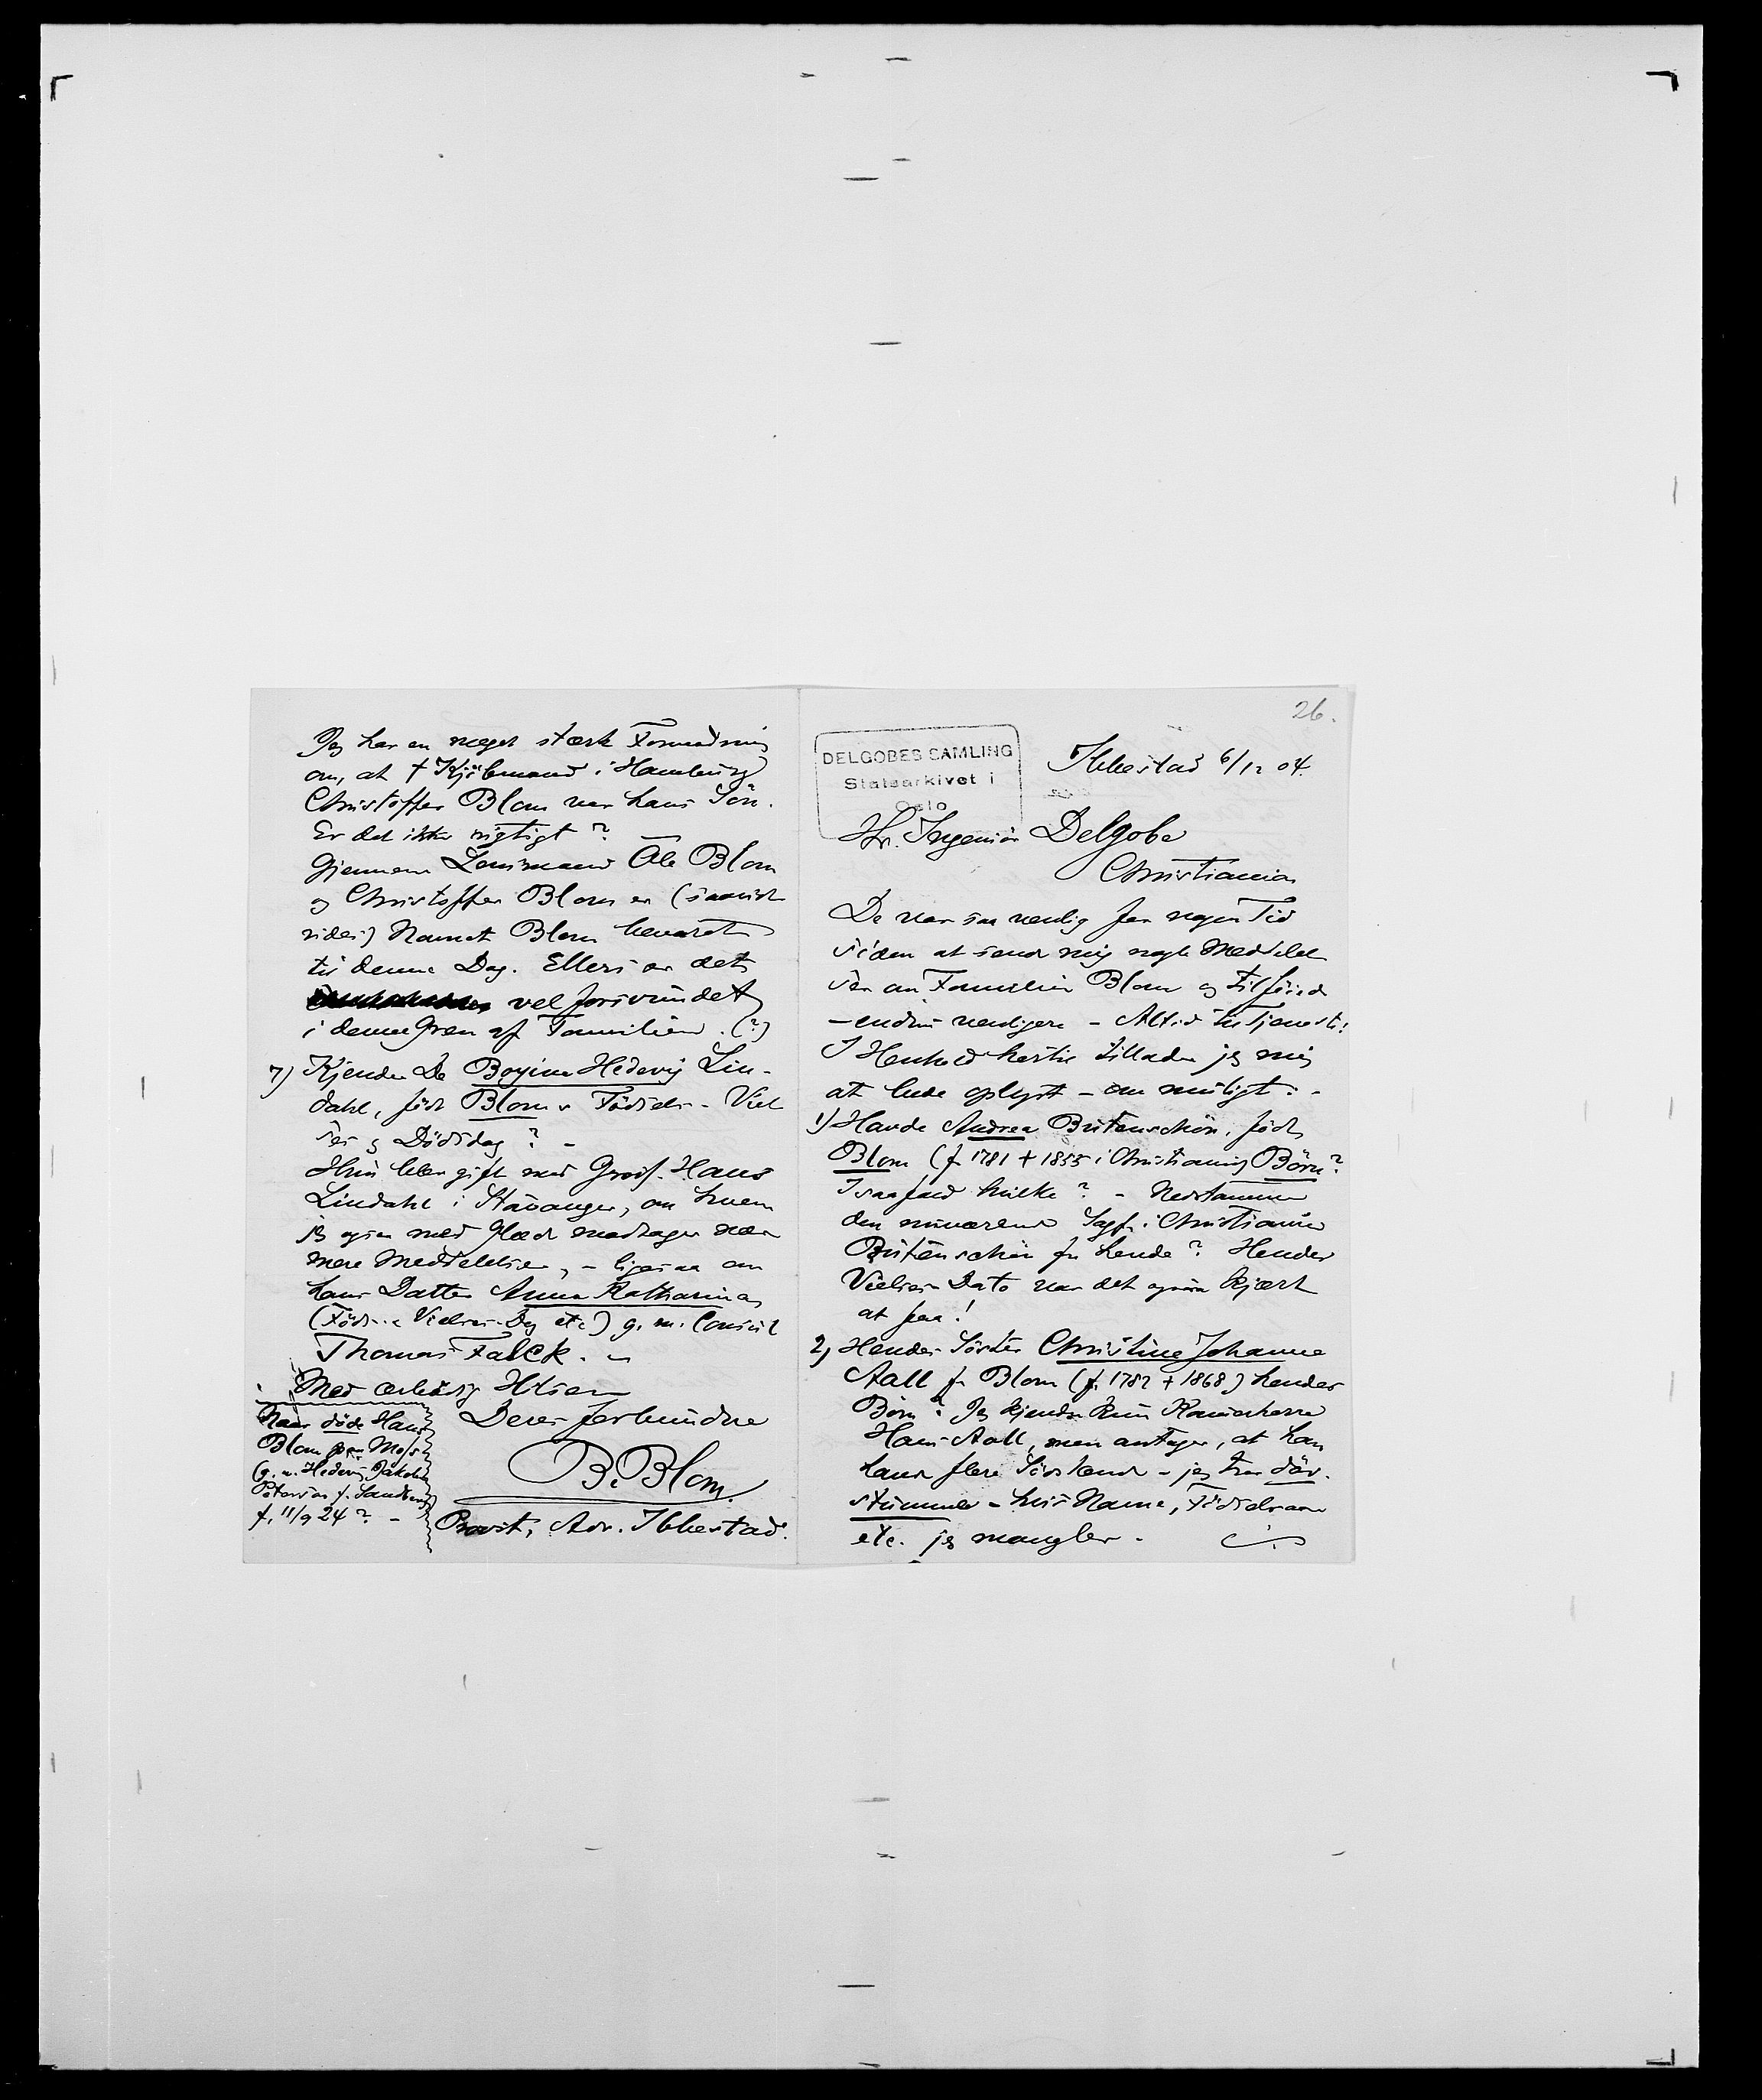 Jeg har en meget stærk Formodning
om, at † Kjöbmand i Hamburg
Christoffer Blom var hans Sön.
Er det ikke rigtigt?
Gjennem Lensmand Ole Blom
og Christoffer Blom er (saavidt
vides) Navnet Blom bevaret
til denne Dag. Ellers er det
vel forsvundet
i denne Gren af Familien. (?)
7) Kjender De Bogine Hedevig Lin-
dahl, född Blom's Födsels- Viel
ses og Dödsdag? -
Hun blev gift med Gross. Hans
Lindahl i Stavanger, om hvem
jeg ogsaa med Glæde modtager nær
mere Meddelelser, - ligesaa om
hans Datter Anna Katharina
(Föds.. Vielses-Dag etc) g. m. Consul
Thomas Falck. -
Med ærbödig Hilsen
Deres forbundne
B. Blom.
Provst, Adr. Ibbestad.
Naar döde Hans
Blom paa Moss
(g. m. Hedevig Jakobine
Petersen f. Sandberg
f. 11/9 24? -
26.
DELGOBES SAMLING
Statsarkivet i
Oslo
Ibbestad 6/12 04.
Hr. Ingeniör Delgobe
Christiania
De var saa venlig for nogen Tid
siden at sende mig nogle Meddelel
ser om Familien Blom og tilföiede
-endnu venligere - Altid til Tjeneste!
I Henhold hertil tillader jeg mig
at bede oplyst - om muligt: -
1) Havde Andrea Bütenschön, född
Blom (f. 1781 † 1855 i Christiania) Börn?
I saafald hvilke? - Nedstammer
den nuværende Sagf. i Christiania
Bütenschön fra hende? Hendes
Vielses-Dato var det ogsaa kjært
at faa!
2) Hendes Söster Christine Johanne
Aall f. Blom (f. 1782 † 1868) hendes
Börn? Jeg kjender kun Kammerherre
Hans Aall, men antager, at han
havde flere Södskende - jeg tror döv-
stumme - hvis Navne, Födselsaar
etc. jeg mangler -